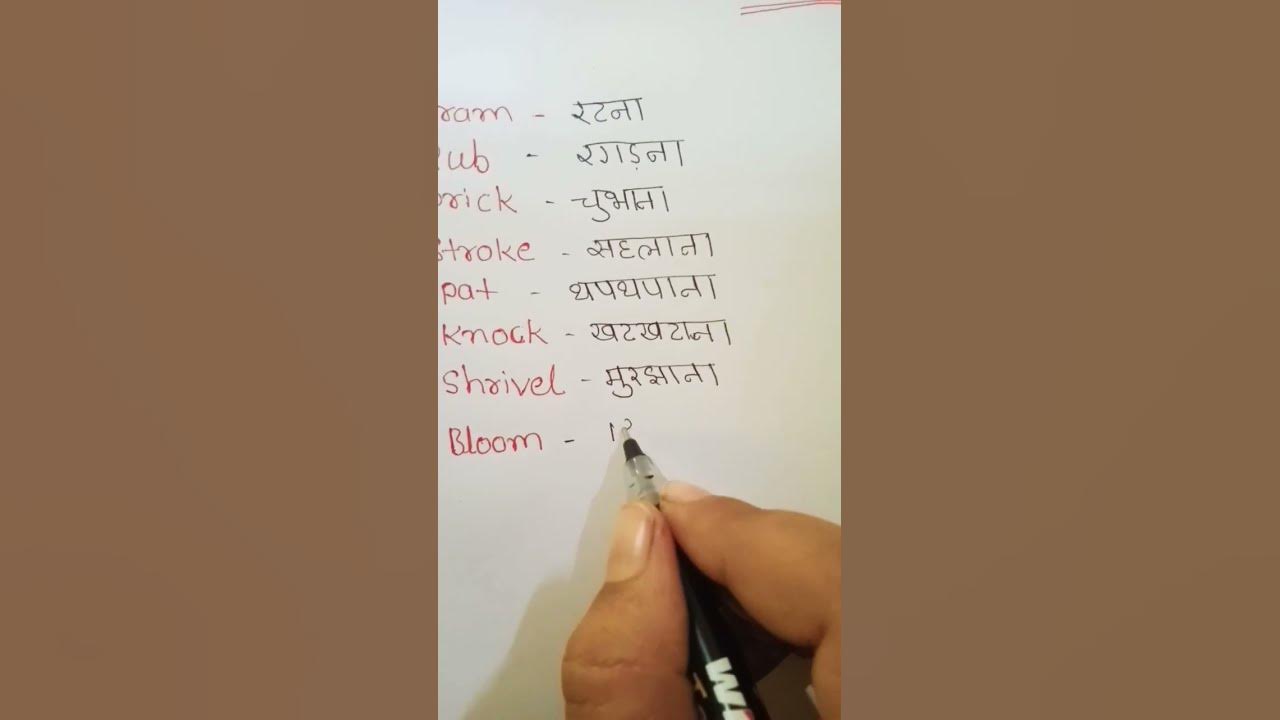 ram - रटना
ub - रगड़ना
rick - चुभाना
stroke - सहलाना
pat - थपथपाना
Knock - खटखटाना
Shrivel - मुरझाना
Bloom -